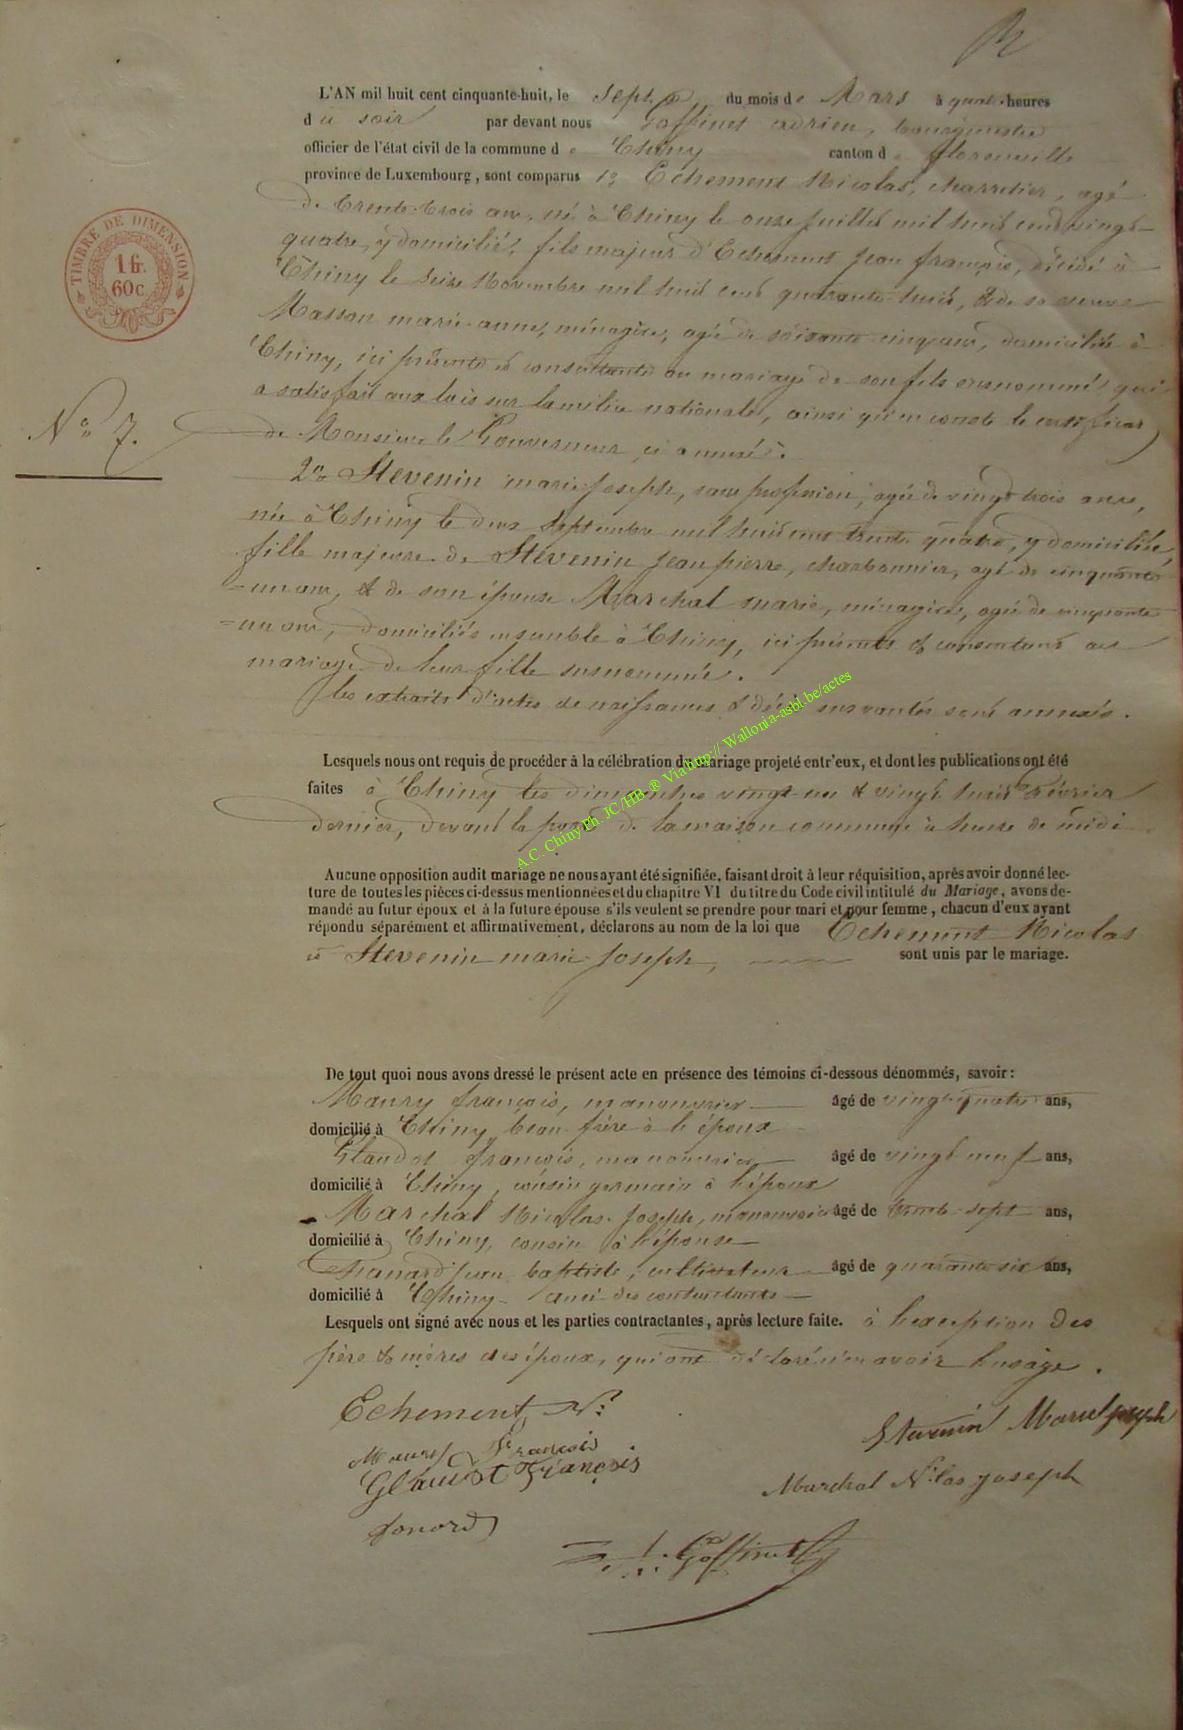 L'AN mil huit cent cinquante-huit, le sept du mois de Mars à quatre heures
du soir par devant nous Goffinet Adrien, bourgmestre
officier de l'état civil de la commune de Chiny canton de florenville
province de Luxembourg, sont comparus 1º Echement Nicolas, charretier, agé
de trente-trois ans, né à Chiny le onze juillet mil huit cent vingt-
quatre, y domicilié, fils majeur d'Echement Jean françois, décédé à
TIMBRE DE DIMENSION
1 fr.
60c
Chiny le seize Novembre mil huit cent quarante-huit, & de sa veuve
Masson marie-anne, ménagère, agée de soixante-cinq ans, domiciliée à
Chiny, ici présente et consentante au mariage de son fils susnommé, qui
a satisfait aux lois sur la milice nationale, ainsi qu'en conste le certificat
Nº 7.
de Monsieur le Gouverneur ci annexé.
2º Stevenin marie-joseph, sans profession, agée de vingt-trois ans,
née à Chiny le deux Septembre mil huit cent trente-quatre, y domiciliée,
fille majeure de Stévenin Jean pierre, charbonnier, agé de cinquante
-un ans, & de son épouse Marchal marie, ménagère, agée de cinquante
-un ans, domiciliés ensemble à Chiny, ici présents & consentant au
mariage de leur fille susnommée.
Les extraits d'actes de naissances & décès survantés sont annexés.
Lesquels nous ont requis de procéder à la célébration du mariage projeté entr'eux, et dont les publications ont été
faites à Chiny les dimanches vingt-un & vingt-huit Février
dernier, devant la porte de la maison commune à heure de midi
A.C. Chiny Ph JC/HB ® Via http:// Wallonia-asbl.be/actes
Aucune opposition audit mariage ne nous ayant été signifiée, faisant droit à leur réquisition, après avoir donné lec-
ture de toutes les pièces ci-dessus mentionnées et du chapitre VI du titre du Code civil intitulé du Mariage, avons de-
mandé au futur époux et à la future épouse s'ils veulent se prendre pour mari et pour femme, chacun d'eux ayant
répondu séparément et affirmativement, déclarons au nom de la loi que Echement Nicolas
et Stevenin marie-joseph, sont unis par le mariage.
De tout quoi nous avons dressé le présent acte en présence des témoins ci-dessous dénommés, savoir:
Maury françois, manouvrier âgé de vingt-quatre ans,
domicilié à Chiny, beau-frère à l'époux
Glaudot françois, manouvrier âgé de vingt neuf ans,
domicilié à Chiny, cousin germain à l'époux
Marchal Nicolas-Joseph, manouvrier âgé de trente-sept ans,
domicilié à Chiny, cousin à l'épouse
jean baptiste, cultivateur âgé de quarante-six ans,
domicilié à Chiny ami des contractants
Lesquels ont signé avec nous et les parties contractantes, après lecture faite. à l'exception des
père & mères des époux, qui ont déclaré n'en avoir l'usage.
Echement N.
Stevenin Marie Joseph
Maury François
Glaudot François
Marchal N.las joseph
Goffinet